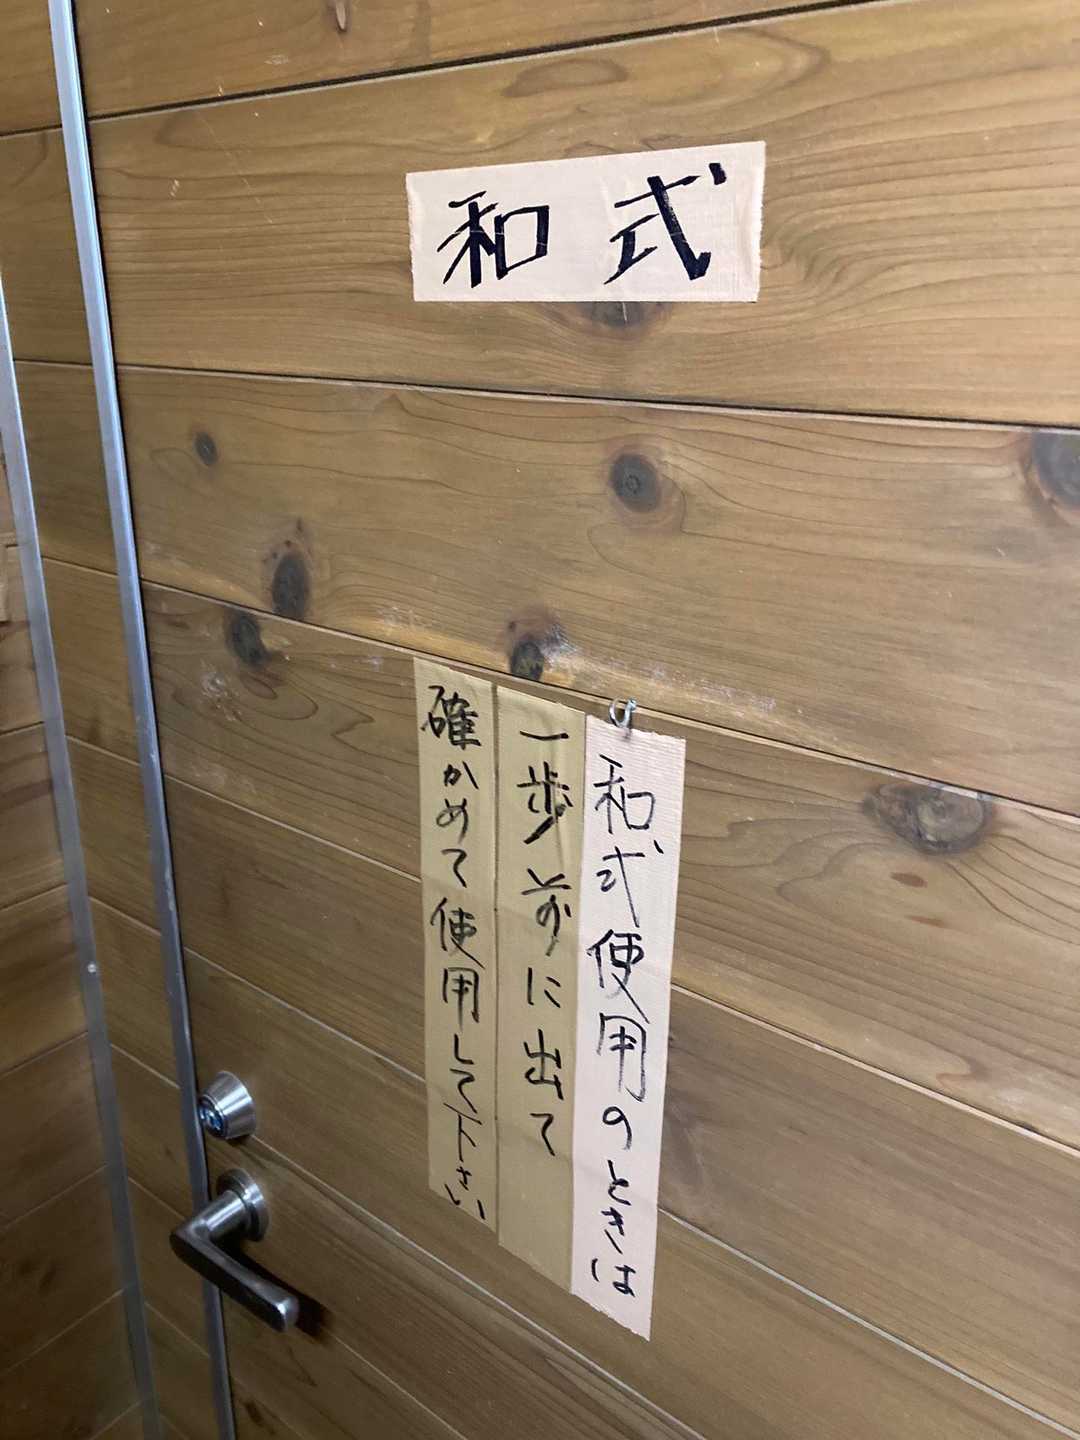 和式
和式使用のときは
一歩前に出て
確かめて使用して下さい